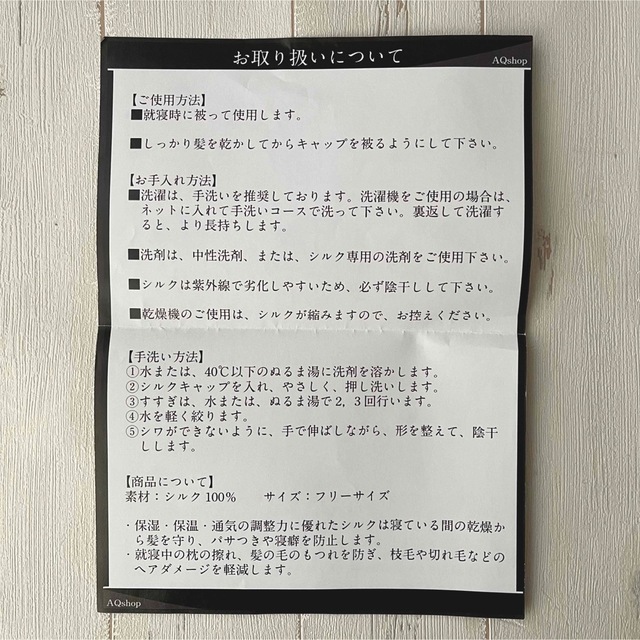 お取り扱いについて
AQshop
【ご使用方法】
■就寝時に被って使用します。
■しっかり髪を乾かしてからキャップを被るようにして下さい。
【お手入れ方法】
■洗濯は、手洗いを推奨しております。洗濯機をご使用の場合は、
ネットに入れて手洗いコースで洗って下さい。裏返して洗濯す
ると、より長持ちします。
■洗剤は、中性洗剤、または、シルク専用の洗剤をご使用下さい。
■シルクは紫外線で劣化しやすいため、必ず陰干しして下さい。
■乾燥機のご使用は、シルクが縮みますので、お控えください。
【手洗い方法】
①水または、40℃以下のぬるま湯に洗剤を溶かします。
②シルクキャップを入れ、やさしく、押し洗いします。
③すすぎは、水または、ぬるま湯で2，3回行います。
④水を軽く絞ります。
⑤シワができないように、手で伸ばしながら、形を整えて、陰干
しします。
【商品について】
素材：シルク100％　　サイズ：フリーサイズ
・保湿・保温・通気の調整力に優れたシルクは寝ている間の乾燥か
ら髪を守り、パサつきや寝癖を防止します。
・就寝中の枕の擦れ、髪の毛のもつれを防ぎ、枝毛や切れ毛などの
ヘアダメージを軽減します。
AQshop